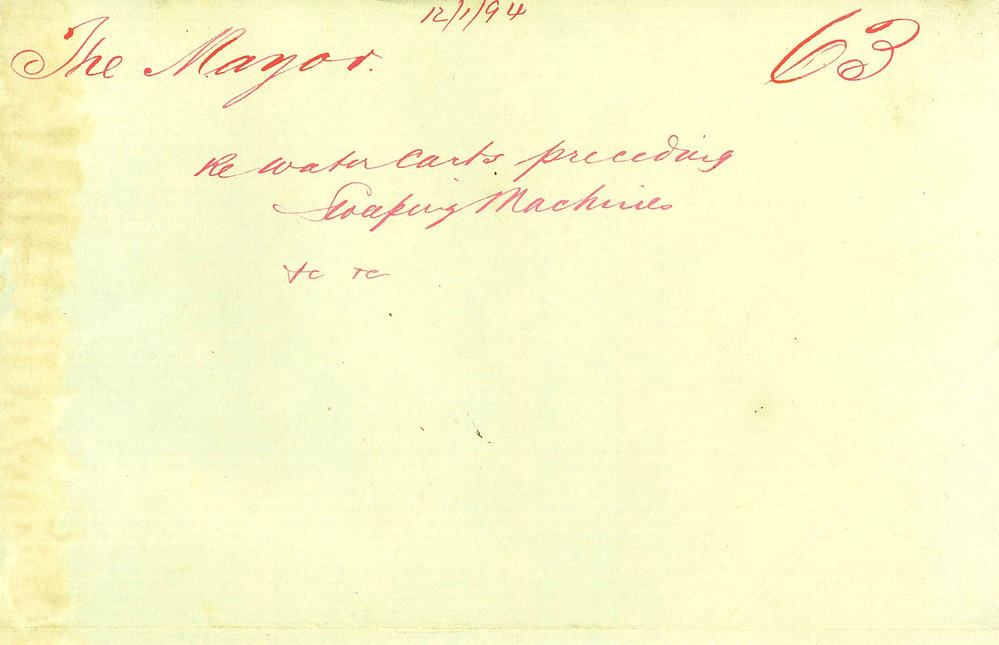 12/1/94
The Mayor. 63
Re Water Carts preceding
Sweeping Machines
&c &c